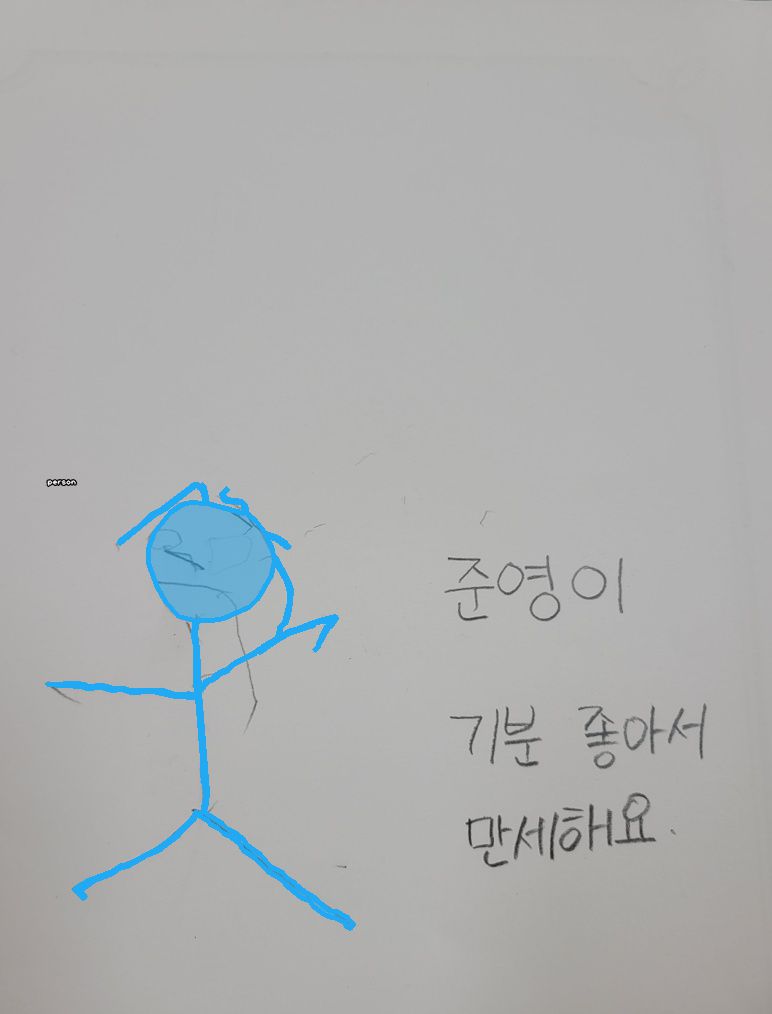 person
준영이
기분 좋아서
만세해요.